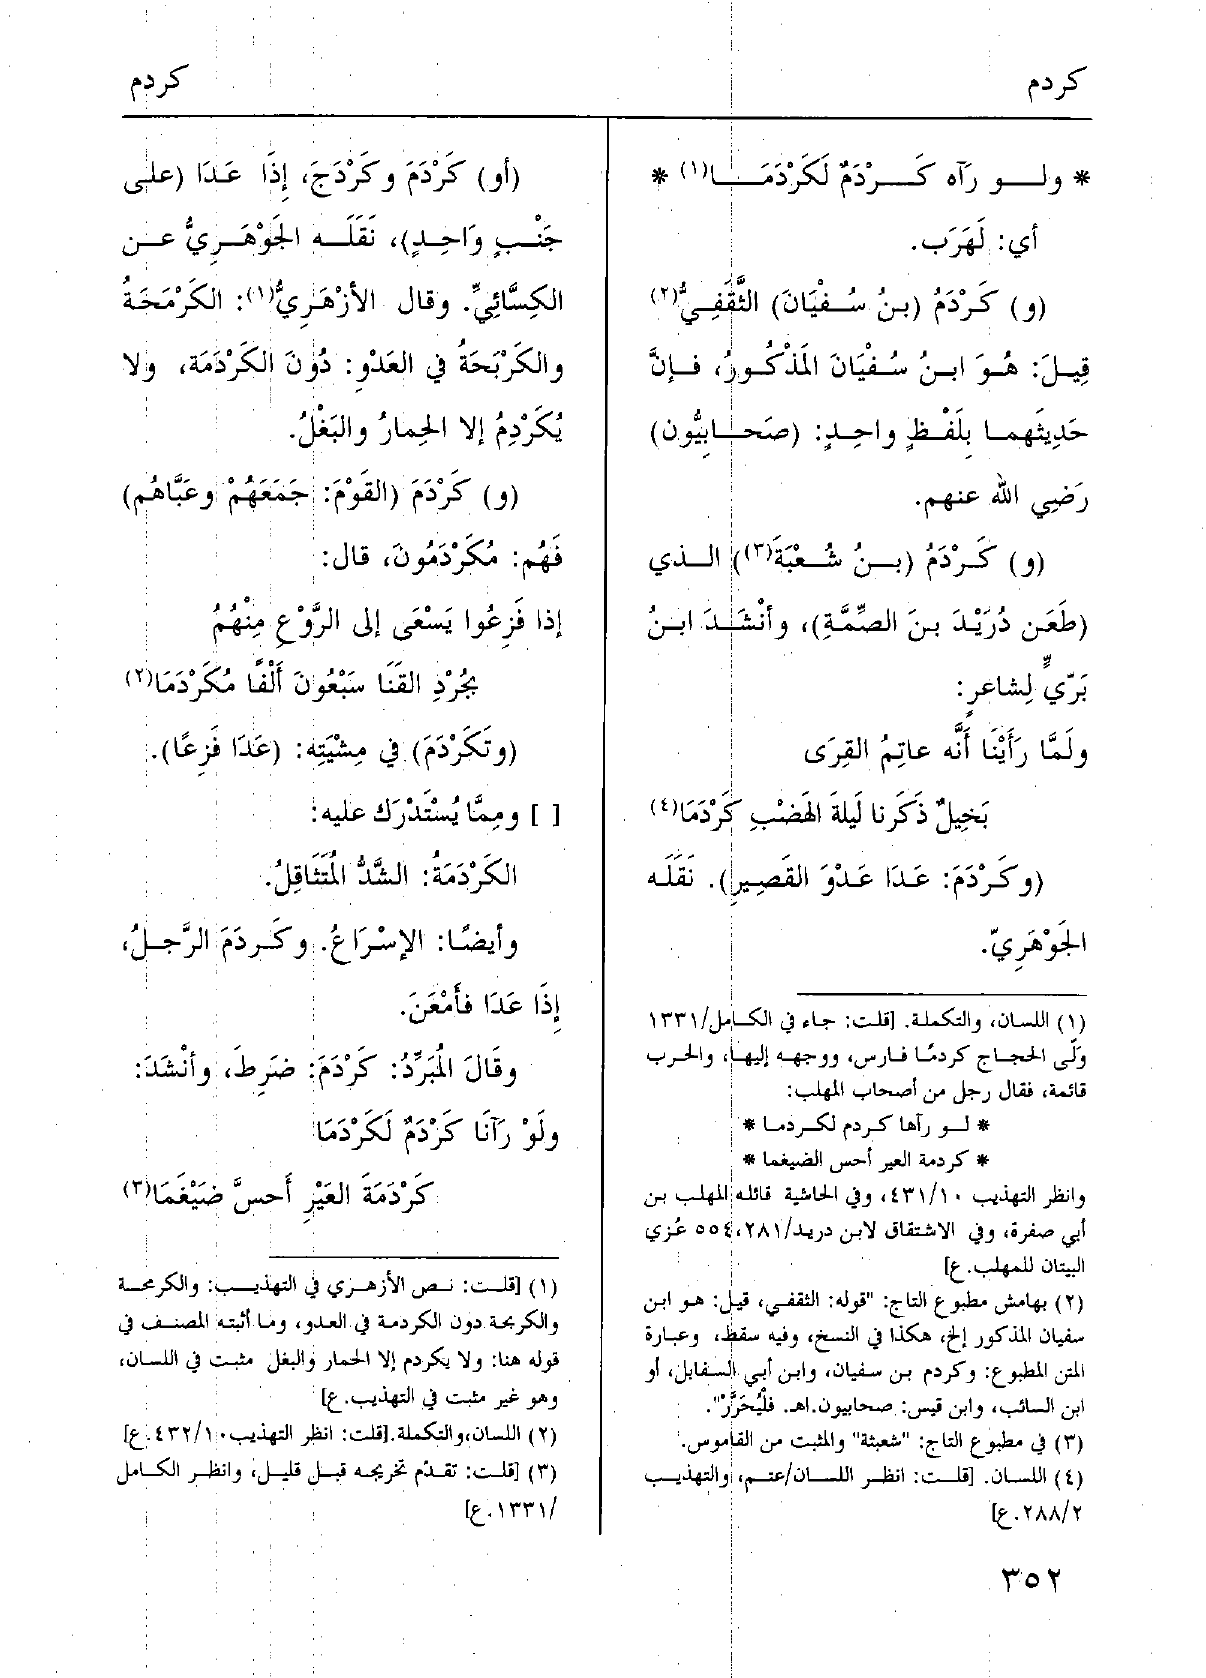 كردم
كردم
* ولـو رَآه كَـرْدَمٌ لَكَرْدَمَـا(١) *
أي: لَهَرَب.
(و) كَرْدَمُ (بنُ سُفْيَانَ) الثَّقَفِيُّ(٢)
قِيلَ: هُوَ ابنُ سُفْيَانَ المَذْكُورُ، فإنَّ
حَدِيثَهما بِلَفْظٍ واحِدٍ: (صَحابِيُّون)
رَضِي الله عنهم.
(و) كَرْدَمُ (بنُ شُعْبَةَ(٣)) الذي
(طَعَن دُرَيْدَ بنَ الصِّمَّةِ)، وأنْشَدَ ابنُ
بَرّيٍّ لِشاعرٍ:
ولَمَّا رَأَيْنَا أَنَّه عاتِمُ القِرَى
بَخِيلٌ ذَكَرنا لَيلةَ الهَضْبِ كَرْدَمَا(٤)
(وكَرْدَمَ: عَدَا عَدْوَ القَصِيرِ). نَقَلَه
الجَوْهَرِيّ.
(١) اللسان، والتكملة. [قلت: جاء في الكامل/١٣٣١
ولّى الحجاج كردمًا فارس، ووجهه إليها، والحرب
قائمة، فقال رجل من أصحاب المهلب:
* لـو رآها كردم لكردمـا *
* كردمة العير أحس الضيغما *
وانظر التهذيب ٤٣١/١٠، وفي الحاشية قائله المهلب بن
أبي صفرة، وفي الاشتقاق لابن دريد/٢٨١، ٥٥٤ عُزي
البيتان للمهلب.ع]
(٢) بهامش مطبوع التاج: "قوله: الثقفي، قيل: هو ابن
سفيان المذكور إلخ، هكذا في النسخ، وفيه سقط، وعبارة
المتن المطبوع: وكردم بن سفيان، وابن أبي السفابل، أو
ابن السائب، وابن قيس: صحابيون.اهـ. فلْيُحَرَّرْ".
(٣) في مطبوع التاج: "شعبثة" والمثبت من القاموس.
(٤) اللسان. [قلت: انظر اللسان/عتم، والتهذيب
٢٨٨/٢.ع]
(أو) كَرْدَمَ وكَرْدَجَ، إِذَا عَدَا (على
جَنْبٍ وَاحِدٍ)، نَقَلَه الجَوْهَرِيُّ عن
الكِسَّائِيِّ. وقال الأزْهَرِيُّ(١): الكَرْمَحَةُ
والكَرْبَحَةُ في العَدْوِ: دُوْنَ الكَرْدَمَة، ولا
يُكَرْدِمُ إلا الحِمارُ والبَغْلُ.
(و) كَرْدَمَ (القَوْمَ: جَمَعَهُمْ وعَبَّاهُم)
فَهُم: مُكَرْدَمُونَ، قال:
إذا فَزِعُوا يَسْعَى إلى الرَّوْعِ مِنْهُمُ
بجُرْدِ القَنَا سَبْعُونَ أَلْفًا مُكَرْدَمَا(٢)
(وتَكَرْدَمَ) في مِشْيَتِه: (عَدَا فَزِعًا).
[ ] ومِمَّا يُسْتَدْرَك عليه:
الكَرْدَمَةُ: الشَّدُّ المُتَثَاقِلُ.
وأيضًا: الإِسْرَاعُ. وكَردَمَ الرَّجلُ،
إِذَا عَدَا فأَمْعَنَ.
وقَالَ المُبَرِّدُ: كَرْدَمَ: ضَرِطَ، وأنْشَدَ:
ولَوْ رَآنَا كَرْدَمٌ لَكَرْدَمَا
كَرْدَمَةَ العَيْرِ أَحسَّ ضَيْغَمَا(٣)
(١) [قلت: نص الأزهري في التهذيب: والكرمحة
والكربحة دون الكردمة في العدو، وما أثبته المصنف في
قوله هنا: ولا يكردم إلا الحمار والبغل مثبت في اللسان،
وهو غير مثبت في التهذيب.ع]
(٢) اللسان،والتكملة.[قلت: انظر التهذيب٤٣٢/١٠.ع]
(٣) [قلت: تقدّم تخريجه قبل قليل، وانظر الكامل
/١٣٣١.ع]
٣٥٢